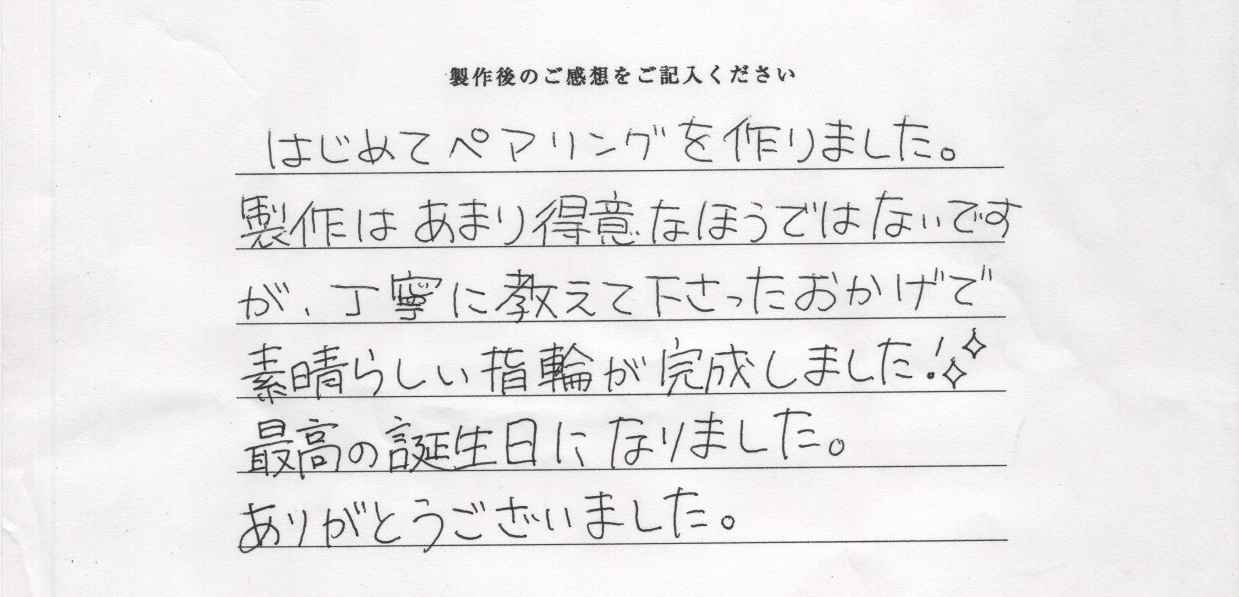 製作後のご感想をご記入ください
はじめてペアリングを作りました。
製作はあまり得意なほうではないです
が、丁寧に教えて下さったおかげで
素晴らしい指輪が完成しました!✧✧
最高の誕生日になりました。
ありがとうございました。